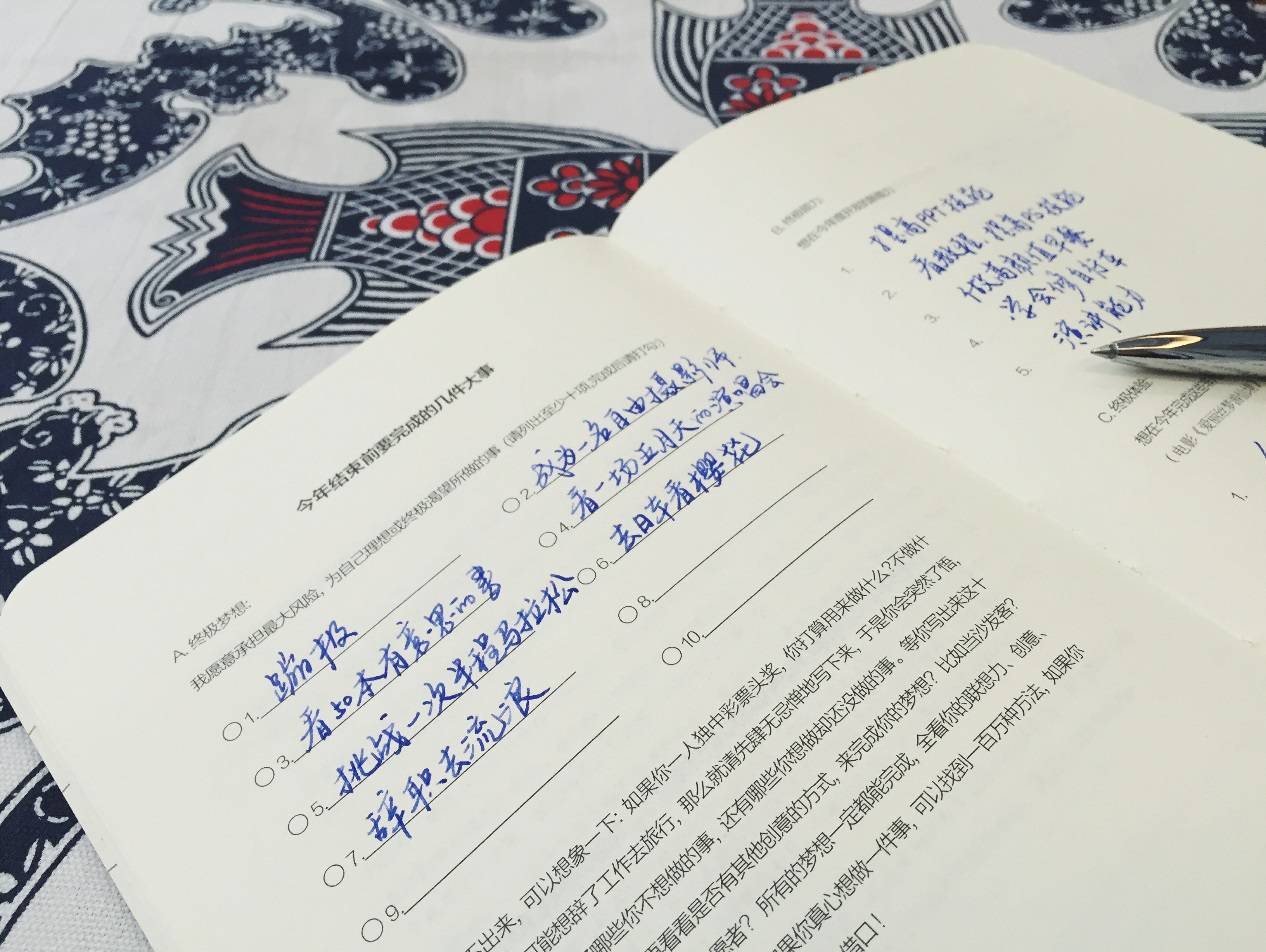 今年结束前要完成的几件大事
A. 终极梦想:
我愿意承担最大风险，为自己理想或终极渴望所做的事（请列出至少十项,完成后请打勾）
1. 蹦极
2. 成为一名自由摄影师
3. 看50本有意思的书
4. 看一场五月天的演唱会
5. 挑战一次半程马拉松
6. 去日本看樱花
7. 辞职去流浪
8.
9.
10.
不出来，可以想象一下：如果你一人独中彩票头奖，你打算用来做什么？不做什
可能想辞了工作去旅行，那么就请先肆无忌惮地写下来，于是你会突然了悟，
哪些你不想做的事，还有哪些你想做却还没做的事。等你写出来这十
看看是否有其他创意的方式，来完成你的梦想？比如当沙发客？
愿者？所有的梦想一定都能完成，全看你的联想力、创意、
果你真心想做一件事，可以找到一百万种方法，如果你
借口！
B. 终极能力
想在今年提升的
1. 提高PPT技能
2. 看教程，提高PS技能
3. 做高颜值早餐
4. 学会修自行车
5. 演讲能力
C. 终极体验:
想在今年完成
（电影《爱丽丝梦游
1.